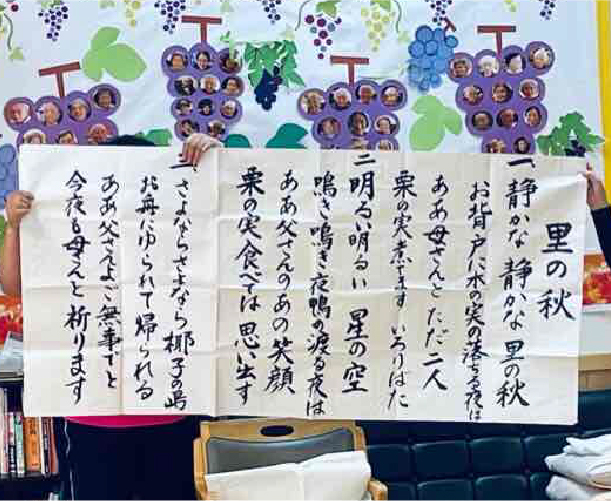 里の秋
一 静かな 静かな 里の秋
お背戸に木の実の落ちる夜は
ああ母さんと ただ二人
栗の実煮てます いろりばた
二 明るい明るい 星の空
鳴き鳴き夜鴨の渡る夜は
ああ父さんのあの笑顔
栗の実食べては 思い出す
三 さよならさよなら 椰子の島
お舟にゆられて 帰られる
ああ父さんよご無事でと
今夜も母さんと 祈ります